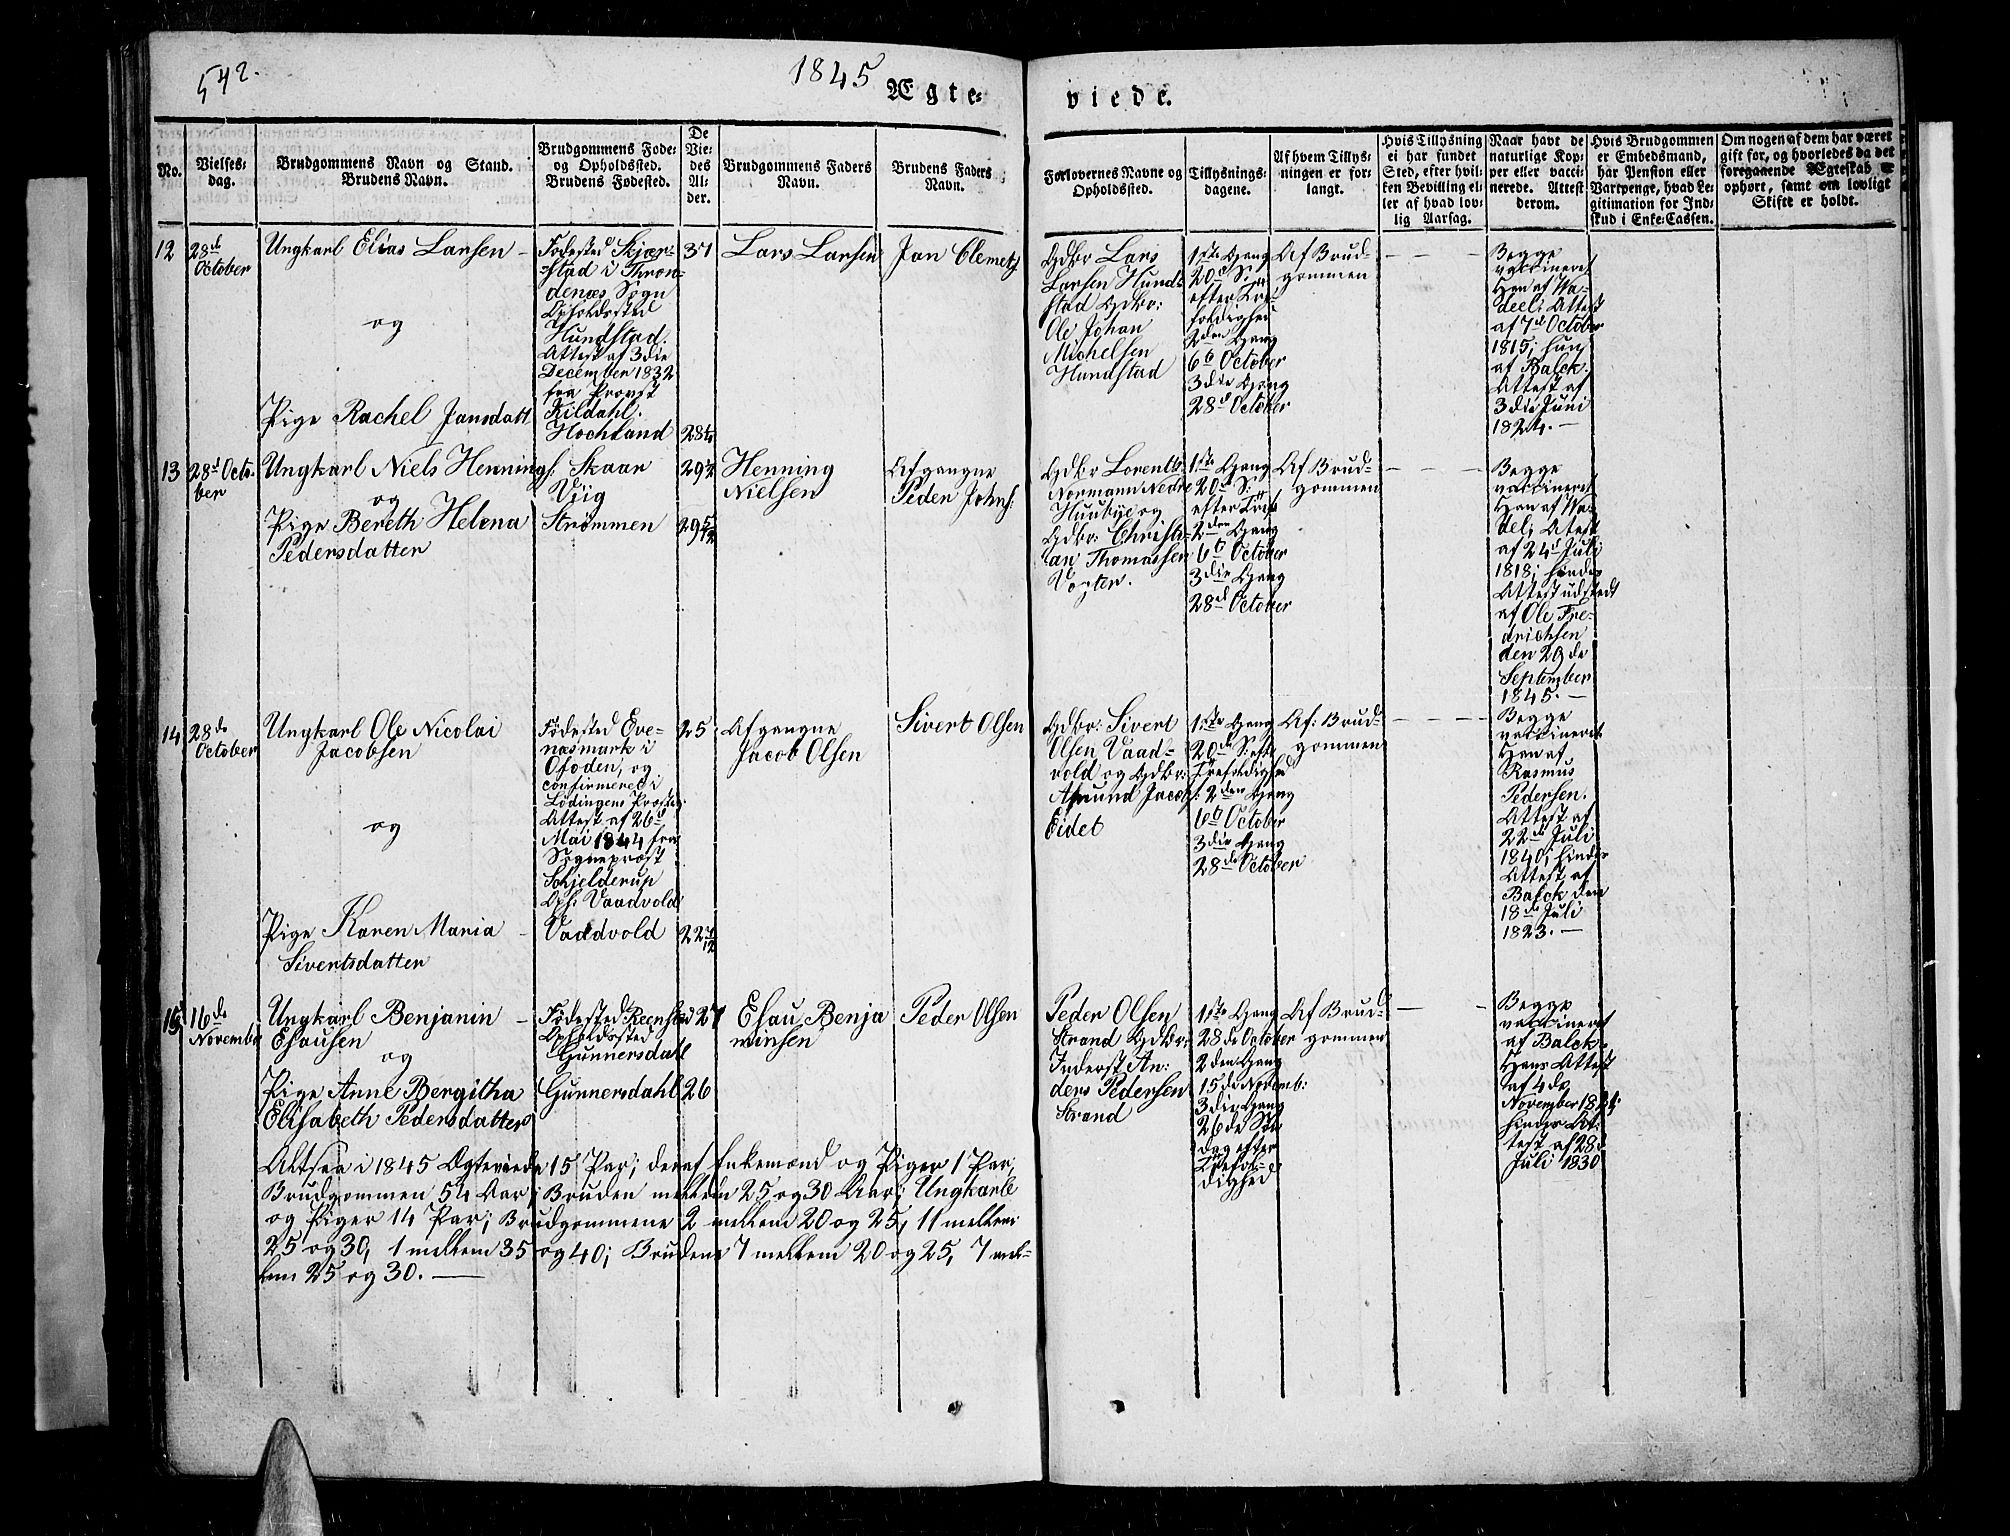 542.
1845
Ægte-
viede.
No.
Vielses-
dag.
Brudgommens Navn og Stand.
Brudens Navn.
Brudgommens Føde-
og Opholdssted.
Brudens Fødested.
De
Vie-
des
Al-
der.
Brudgommens Faders
Navn.
Brudens Faders
Navn.
Forlovernes Navne og
Opholdssted.
Tillysnings-
dagene.
Af hvem Tillys-
ningen er for-
langt.
Hvis Tillysning
ei har fundet
Sted, efter hvil-
ken Bevilling el-
ler af hvad lov-
lig Aarsag.
Naar havt de
naturlige Kop-
per eller vacci-
nerede. Attest
derom.
Hvis Brudgommen
er Embedsmand,
har Pension eller
Vartpenge, hvad Le-
gitimation for Ind-
skud i Enke-Cassen.
Om nogen af dem har været
gift før, og hvorledes da det
foregaaende Ægteskab er
ophørt, samt om lovligt
Skifte er holdt.
12
28de
October
Ungkarl Elias Larsen
og
Pige Rachel Jansdatt
Fødested Skjær-
stad i Thron-
denæs Sogn
Opholdssted
Hundstad.
Attest af 3die
December 1832
fra Provst
Kildahl.
Hochland
37
28¼
Lars Larsen
Jan Clemets
Gdbr Lars
Larsen Hund-
stad Gdbr:
Ole Johan
Michelsen
Hundstad
1ste Gang
20de S:
efter Tre-
foldighed
2den Gang
6te October
3die Gang
28de October
Af Brud-
gommen
Begge
vaccineret
Han af Wa-
deel; Attest
af 7de October
1815; hun
af Balck.
Attest af
3die Juni
1824. —
13
28de Octo-
ber
Ungkarl Niels Hennings:
og
Pige Bereth Helena
Pedersdatter
Skaar
Viig
Strømmen
29½
29 5/12
Henning
Nielsen
Afgangne
Peder Johns:
Gdbr Lorents
Normann Nedre
Huubye og
Gdbr: Christi-
an Thomassen
Vogter.
1ste Gang
20de S:
efter Tref
2den Gang
6te October
3die Gang
28de October
Af Brud-
gommen
Begge
vaccineret
Han af Wa-
del; Attest
af 24de Juli
1818; hendes
Attest udstedt
af Ole Fre-
drichsen
den 29de
September
1845. —
14
28de
October
Ungkarl Ole Nicolai
Jacobsen
og
Pige Karen Maria
Sivertsdatter
Fødested Eve-
næsmark i
Ofoden, og
confirmeret i
Lødingens Præstg:
Attest af 26de
Mai 1844 fra
Sognepræst
Schjelderup
Oph: Vaadvold
Vaadvold
25
22 7/12
Afgangne
Jacob Olsen
Sivert Olsen
Gdbr: Sivert
Olsen Vaad-
vold og Gdbr:
Amund Jacobs:
Eidet
1ste Gang
20de S: efter
Trefoldighed
2den Gang
6te October
3die Gang
28de October
Af: Brud-
gommen
Begge
vaccineret
Han af
Rasmus
Pedersen.
Attest af
22de Juli
1840; hendes
Attest af
Balck den
18de Juli
1823. —
15
16de
November
Ungkarl Benjamin
Esausen
og
Pige Anne Bergitha
Elisabeth Pedersdatter
Fødested Reenstad
Opholdssted
Gunnersdahl
Gunnersdahl
27
26
Esau Benja
minsen
Peder Olsen
Peder Olsen
Strand Gdbr:
Inderst An:
ders Pedersen
Strand
1ste Gang
28de October
2den Gang
15de Novemb:
3die Gang
26de Søn
dag efter
Trefol-
dighed
Af Brud-
gommen
Begge
vaccineret
af Balck.
Hans Attest
af 4de
November
hendes At-
test af 28de
Juli 1830
Altsaa i 1845 Ægteviede 15 Par; deraf Enkemænd og Piger 1 Par,
Brudgommen 54 Aar; Bruden mellem 25 og 30 Aar; Ungkarle
og Piger 14 Par; Brudgommene 2 mellem 20 og 25, 11 mellem
25 og 30, 1 mellem 35 og 40; Brudene 7 mellem 20 og 25, 7 mel-
lem 25 og 30. —